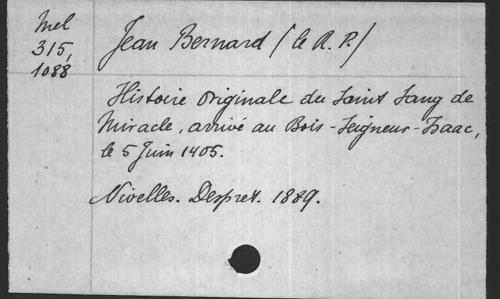 Mel
315,
1088
Jean Bernard / le R. P. /
Histoire originale du Saint Sang de
Miracle, arrivé au Bois-Seigneur-Isaac,
le 5 Juin 1405.
Nivelles. Despret. 1889.